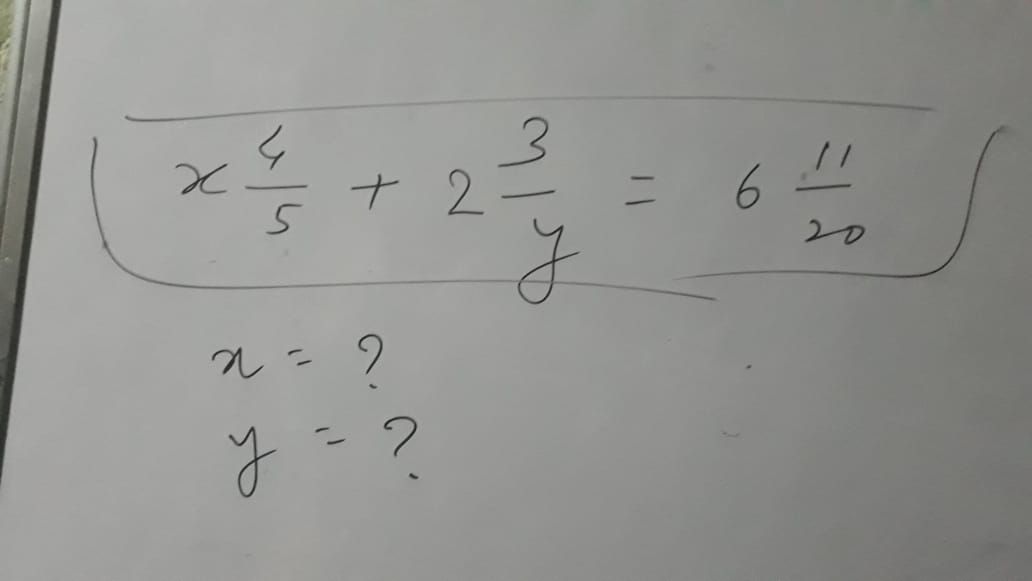 x 4/5 + 2 3/y = 6 11/20
x = ?
y = ?